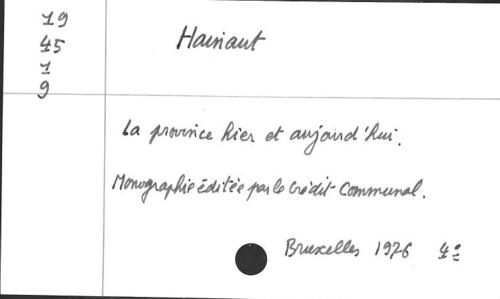 19
45
1
9
Hainaut
La province hier et aujourd'hui.
Monographie éditée par le Crédit Communal.
Bruxelles 1976 4°